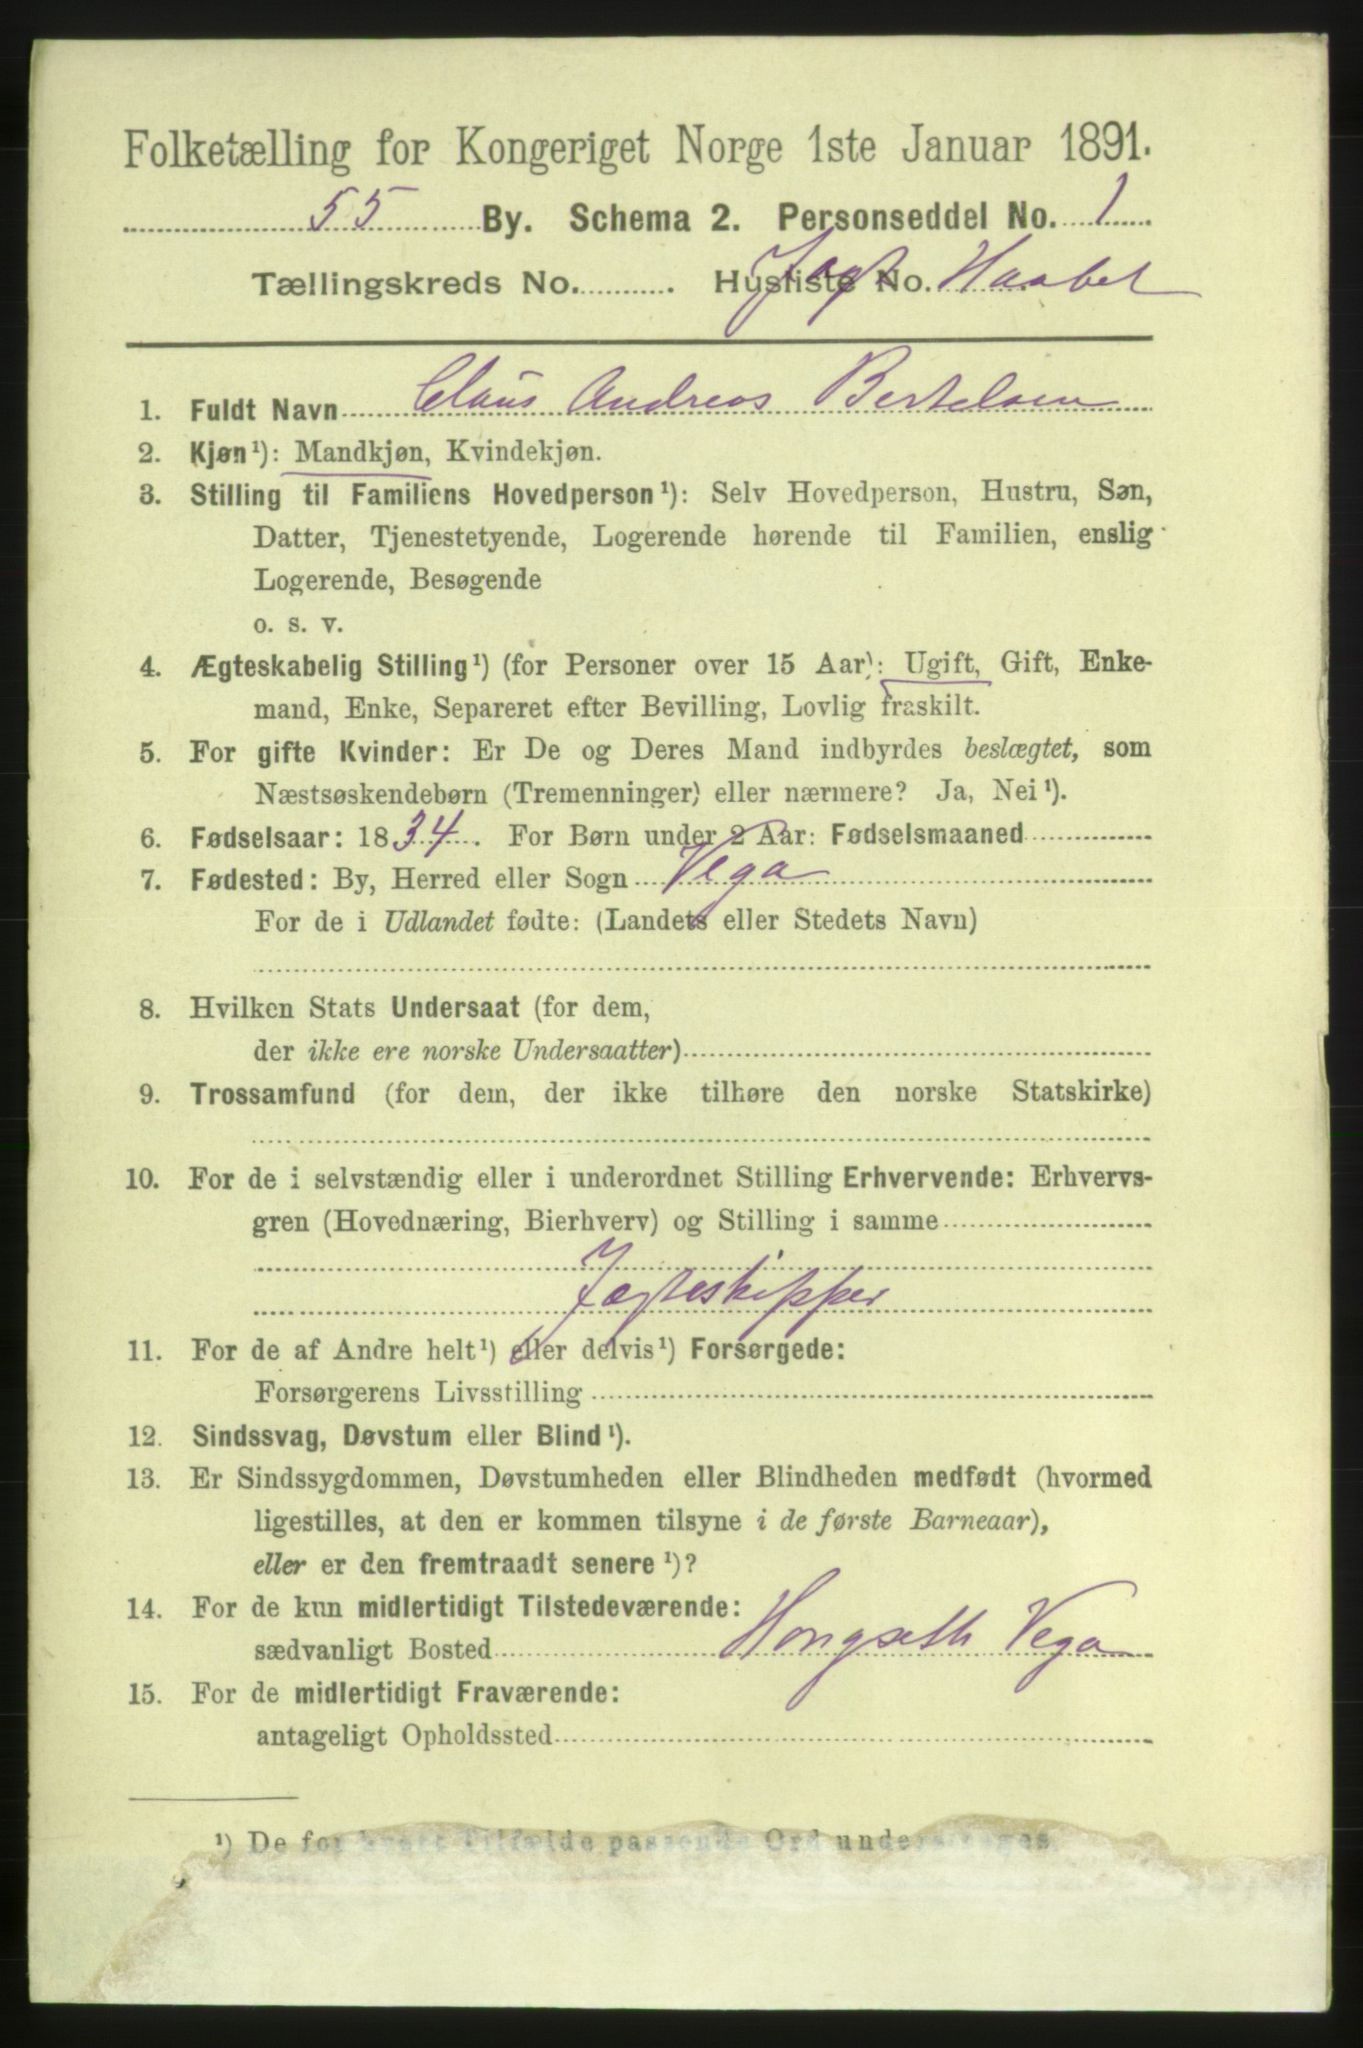 Folketælling for Kongeriget Norge 1ste Januar 1891.
55 By. Schema 2. Personseddel No. 1
Tællingskreds No. . Husliste No. Jagt Haabet
1. Fuldt Navn Claus Andreas Bertelsen
2. Kjøn¹): Mandkjøn, Kvindekjøn.
3. Stilling til Familiens Hovedperson¹): Selv Hovedperson, Hustru, Søn,
Datter, Tjenestetyende, Logerende hørende til Familien, enslig
Logerende, Besøgende
o. s. v.
4. Ægteskabelig Stilling¹) (for Personer over 15 Aar): Ugift, Gift, Enke-
mand, Enke, Separeret efter Bevilling, Lovlig fraskilt.
5. For gifte Kvinder: Er De og Deres Mand indbyrdes beslægtet, som
Næstsøskendebørn (Tremenninger) eller nærmere? Ja, Nei¹).
6. Fødselsaar: 1834. For Børn under 2 Aar: Fødselsmaaned
7. Fødested: By, Herred eller Sogn Vega
For de i Udlandet fødte: (Landets eller Stedets Navn)
8. Hvilken Stats Undersaat (for dem,
der ikke ere norske Undersaatter)
9. Trossamfund (for dem, der ikke tilhøre den norske Statskirke)
10. For de i selvstændig eller i underordnet Stilling Erhvervende: Erhvervs-
gren (Hovednæring, Bierhverv) og Stilling i samme
Jagteskipper
11. For de af Andre helt¹) eller delvis¹) Forsørgede:
Forsørgerens Livsstilling
12. Sindssvag, Døvstum eller Blind¹).
13. Er Sindssygdommen, Døvstumheden eller Blindheden medfødt (hvormed
ligestilles, at den er kommen tilsyne i de første Barneaar),
eller er den fremtraadt senere¹)?
14. For de kun midlertidigt Tilstedeværende:
sædvanligt Bosted Hongseth Vega
15. For de midlertidigt Fraværende:
antageligt Opholdssted
¹) De for hvert Tilfælde passende Ord understreges.